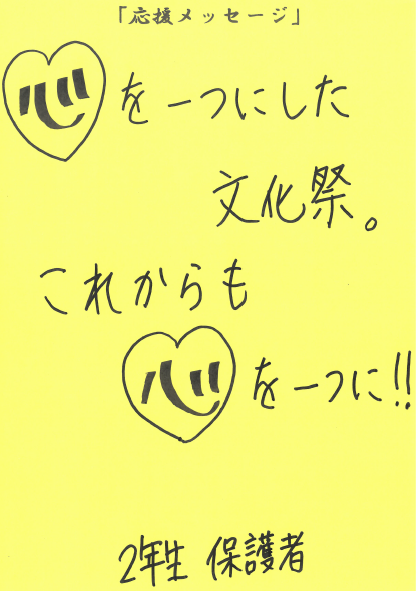 「応援メッセージ」
心を一つにした
文化祭。
これからも
心を一つに!!
2年生 保護者